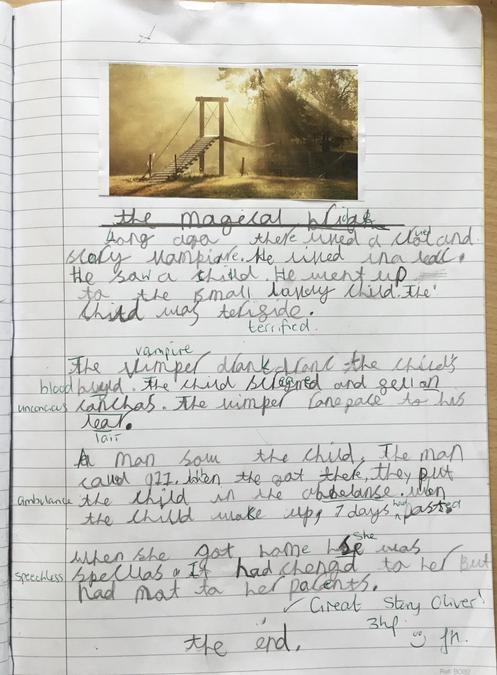 the magical bridge
Long ago there lived a cruel and
scary vampire. He lived in a lear.
He saw a child. He went up
to the small lavley child. The
child was teriside.
terrified.
vampire
The vimper drank the child's
blood
The child and fell on
unconcious canchas. The vimper ranepace to his
lear.
lair
A man saw the child. The man
caled 911. When the got there, they put
ambulance the child in the abbelanse. When
the child wake up, 7 days had passed
When she got home she was
speechless spellas. It had chengd to her But
had mot to her parents.
✓ Great Story Oliver!
3hp
the end.